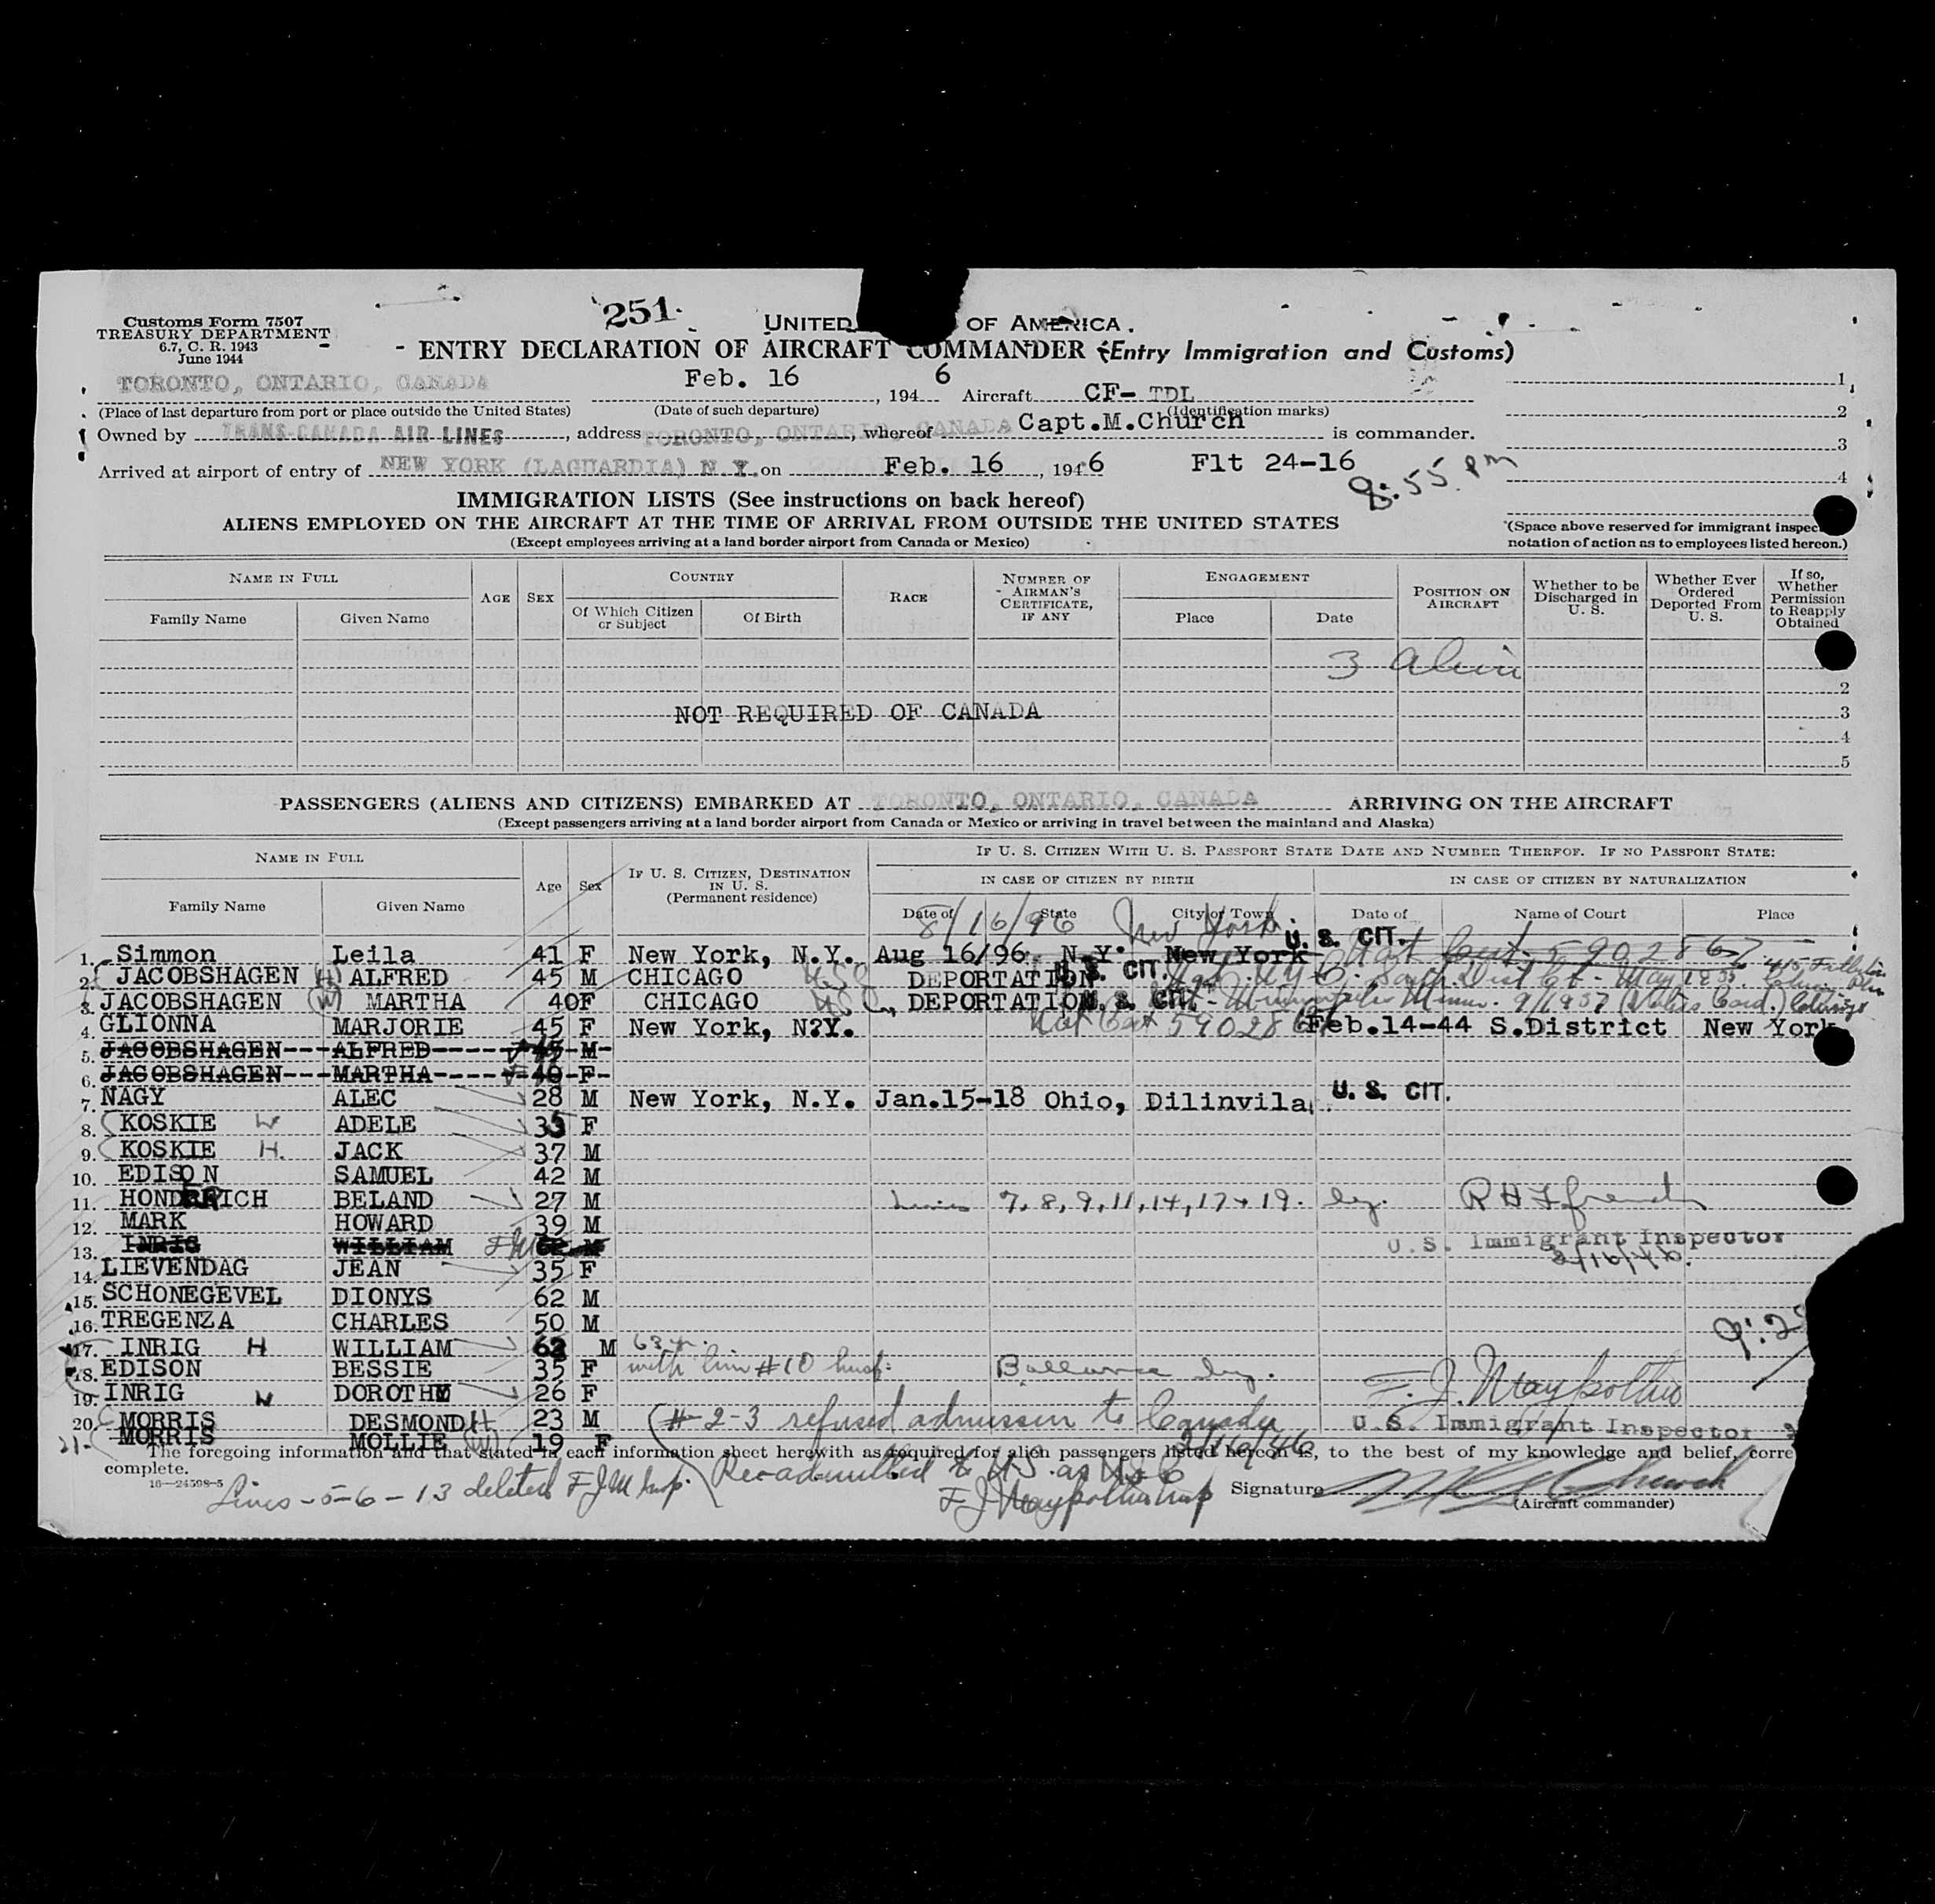 Customs Form 7507
TREASURY DEPARTMENT
6.7, C. R. 1943
June 1944
251.
UNITED OF AMERICA.
ENTRY DECLARATION OF AIRCRAFT COMMANDER (Entry Immigration and Customs)
TORONTO, ONTARIO, CANADA Feb. 16, 194 6 Aircraft CF- TDL
(Place of last departure from port or place outside the United States) (Date of such departure) (Identification marks)
Owned by TRANS-CANADA AIR LINES, address TORONTO, ONTARIO, CANADA, whereof Capt.M.Church is commander.
Arrived at airport of entry of NEW YORK (LAGUARDIA) N.Y. on Feb. 16, 1946 Flt 24-16
8:55 pm
1
2
3
4
IMMIGRATION LISTS (See instructions on back hereof)
ALIENS EMPLOYED ON THE AIRCRAFT AT THE TIME OF ARRIVAL FROM OUTSIDE THE UNITED STATES
(Except employees arriving at a land border airport from Canada or Mexico)
(Space above reserved for immigrant inspec
notation of action as to employees listed hereon.)
NAME IN FULL AGE SEX COUNTRY RACE NUMBER OF AIRMAN'S CERTIFICATE, IF ANY ENGAGEMENT POSITION ON AIRCRAFT Whether to be Discharged in U. S. Whether Ever Ordered Deported From U. S. If so, Whether Permission to Reapply Obtained
Family Name Given Name Of Which Citizen or Subject Of Birth Place Date
3
2
NOT REQUIRED OF CANADA 3
4
5
PASSENGERS (ALIENS AND CITIZENS) EMBARKED AT TORONTO, ONTARIO, CANADA ARRIVING ON THE AIRCRAFT
(Except passengers arriving at a land border airport from Canada or Mexico or arriving in travel between the mainland and Alaska)
NAME IN FULL Age Sex IF U. S. CITIZEN, DESTINATION IN U. S. (Permanent residence) IF U. S. CITIZEN WITH U. S. PASSPORT STATE DATE AND NUMBER THEREOF. IF NO PASSPORT STATE:
IN CASE OF CITIZEN BY BIRTH IN CASE OF CITIZEN BY NATURALIZATION
Family Name Given Name Date of State City or Town Date of Name of Court Place
8/16/96 New York
1. Simmon Leila 41 F New York, N.Y. Aug 16/96 N.Y. New York U. S. CIT. Nat Cert. 5902867
2. JACOBSHAGEN (H) ALFRED 45 M CHICAGO USC DEPORTATION U. S. CIT.
3. JACOBSHAGEN (W) MARTHA 40F CHICAGO USC, DEPORTATION U. S. CIT.
4. GLIONNA MARJORIE 45 F New York, N?Y. Nat Cert 5902867 Feb.14-44 S.District New York
5. JACOBSHAGEN---ALFRED-----45-M-
6. JACOBSHAGEN---MARTHA----40-F-
7. NAGY ALEC 28 M New York, N.Y. Jan.15-18 Ohio, Dilinvila. U. S. CIT.
8. KOSKIE W ADELE 35 F
9. KOSKIE H. JACK 37 M
10. EDISON SAMUEL 42 M
11. HONDERICH BELAND 27 M Lines 7, 8, 9, 11, 14, 17 + 19. by.
12. MARK HOWARD 39 M
13. INRIG WILLIAM FJM 62 M U.S. Immigrant Inspector
2/16/46.
14. LIEVENDAG JEAN 35 F
15. SCHONEGEVEL DIONYS 62 M
16. TREGENZA CHARLES 50 M
17. INRIG H WILLIAM 63 M 63 yr.
18. EDISON BESSIE 35 F with line #10 husb: Ballance by.
19. INRIG W DOROTHY 26 F
20. MORRIS DESMOND H 23 M (#2-3 refused admission to Canada U.S. Immigrant Inspector
21. MORRIS MOLLIE (W) 19 F
2/16/46
The foregoing information and that stated in each information sheet herewith as required for alien passengers listed hereon is, to the best of my knowledge and belief, corre
complete.
16—24598-5
Lines -5-6-13 deleted FJM Insp. Re-admitted to U.S. as USC
Signature
(Aircraft commander)